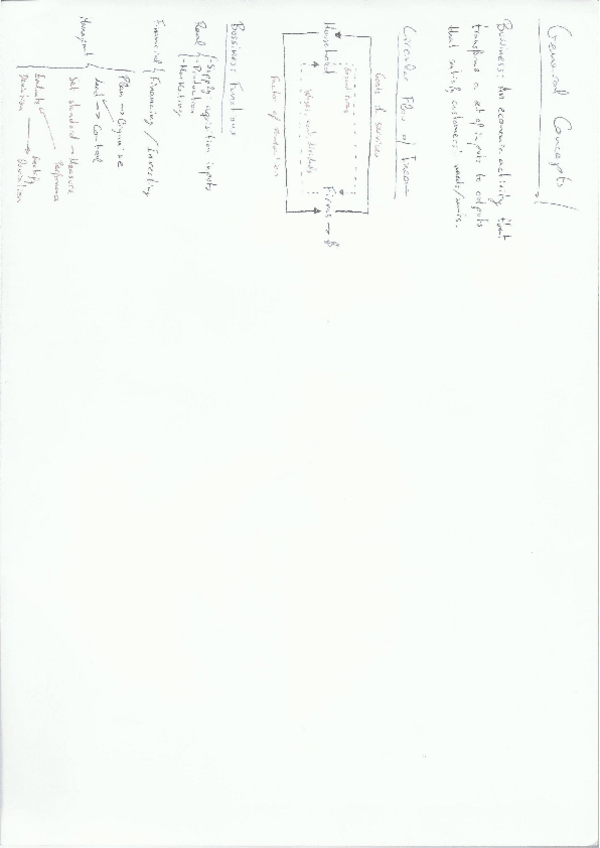 General Concepts
Business: An economic activity that
transforms a set of inputs to outputs
that satisfy customers' needs/wants.
Circular Flow of Income
Goods & services
Household
Firms →
Wages and
Factor of Production
Bussiness Functions
Real { - Supply inputs
- Production
- Marketing
Financial { Financing / Investing
Managmt { Plan → Organize
Lead → Control
Set standard → Measure
Performa
Evaluate
Deviation → Deviation